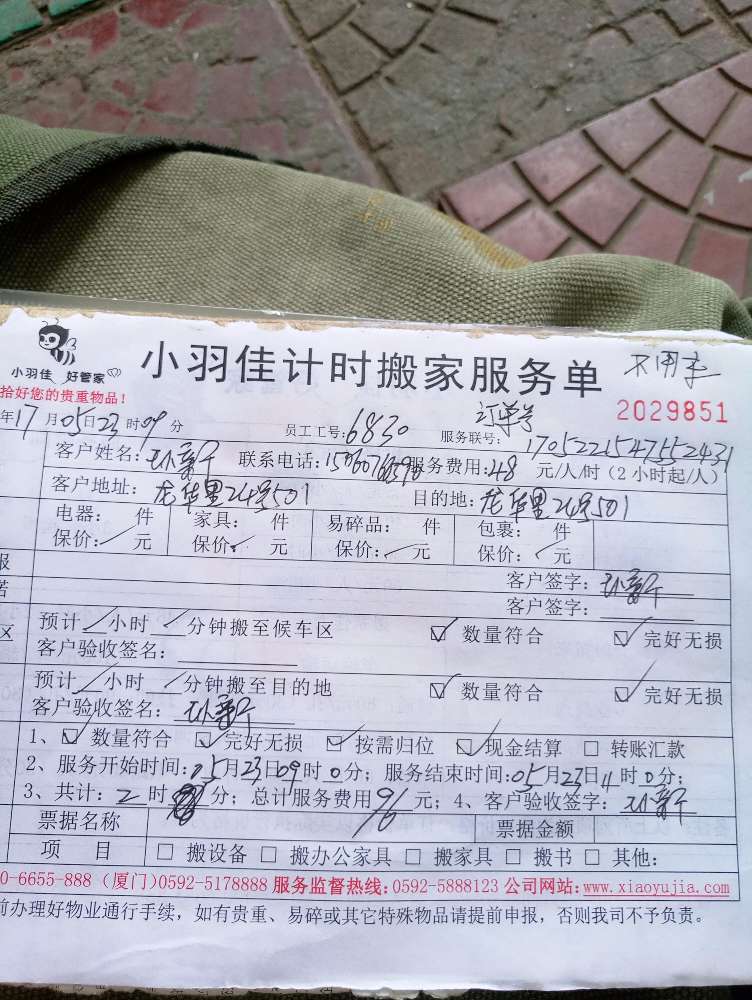 小羽佳 好管家
小羽佳计时搬家服务单 不用车
拾好您的贵重物品！
2029851
年17月05日23时09分 员工工号:6830 服务联号: 订单号 1705221547552431
客户姓名: 联系电话: 服务费用:48元/人/时（2小时起/人）
客户地址: 龙华里24号501 目的地: 龙华里24号501
电器: 件 家具: 件 易碎品: 件 包裹: 件
保价: 元 保价: 元 保价: 元 保价: 元
报 客户签字:
诺 客户签字:
区 预计 小时 分钟搬至候车区 ☑ 数量符合 ☑ 完好无损
客户验收签名:
预计 小时 分钟搬至目的地 ☑ 数量符合 ☑ 完好无损
客户验收签名:
1、☑ 数量符合 ☑ 完好无损 ☑ 按需归位 ☑ 现金结算 □ 转账汇款
2、服务开始时间:05月23日09时0分；服务结束时间:05月23日11时0分；
3、共计: 2时 分；总计服务费用96元；4、客户验收签字:
票据名称 票据金额
项 目 □ 搬设备 □ 搬办公家具 □ 搬家具 □ 搬书 □ 其他:
0-6655-888（厦门）0592-5178888 服务监督热线:0592-5888123 公司网站:www.xiaoyujia.com
前办理好物业通行手续，如有贵重、易碎或其它特殊物品请提前申报，否则我司不予负责。